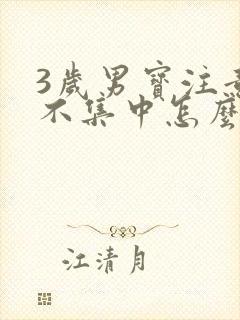 3歲男寶注意
不集中怎麼
江清月